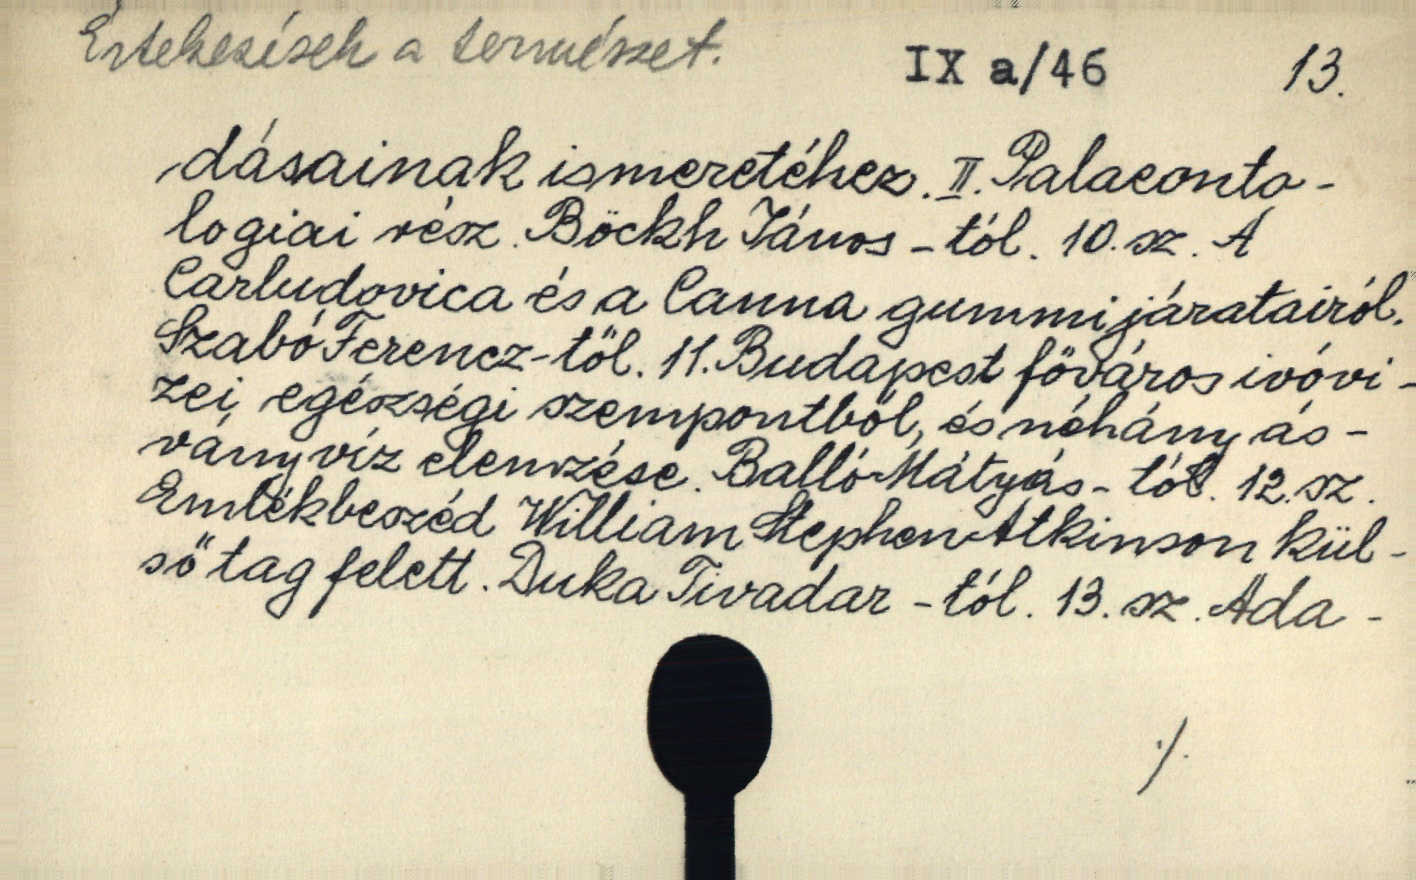 Értekezések a természet.
IX a/46
13.
dásainak ismeretéhez. II. Palaeonto-
logiai rész. Böckh János-tól. 10. sz. A
Carludovica és a Canna gummijáratairól.
Szabó Ferencz-től. 11. Budapest főváros ivóvi-
zei egészségi szempontból, és néhány ás-
ványvíz elemzése. Balló Mátyás-tól. 12. sz.
Emlékbeszéd William Stephen Atkinson kül-
ső tag felett. Duka Tivadar-tól. 13. sz. Ada-
./.